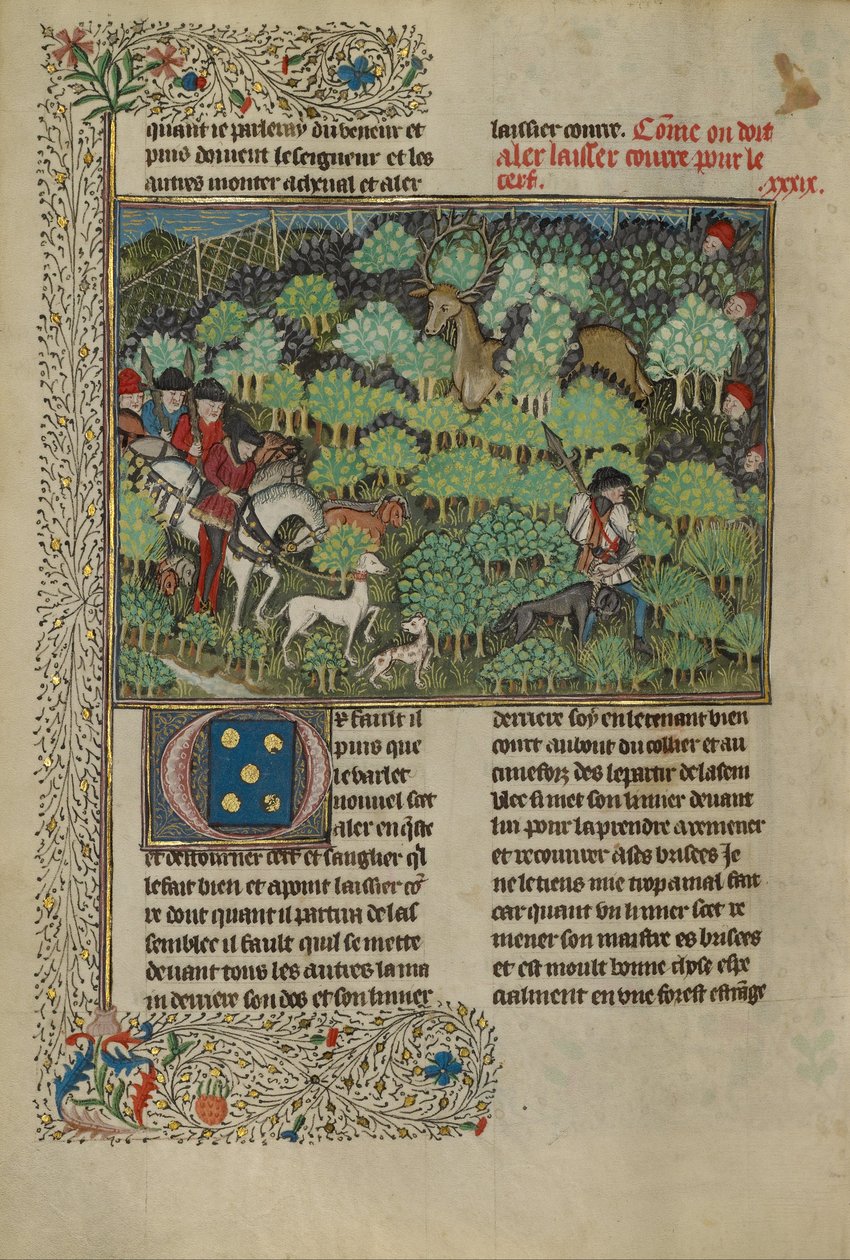 quant ie parleray du veneur et
puis doivent le seigneur et les
autres monter a cheval et aler
laissier courre. Cõme on doit
aler laisser courre pour le
cerf. .xxxix.
Or fault il
puis que
le varlet
nouvel scet
aler en q̃ste
et destourner cerf et sanglier q̃l
le fait bien et a point laissier cõ
re dont quant il partira de las
semblee il fault quil se mette
devant tous les autres la ma
in derriere son dos et son limier
derriere soy en le tenant bien
court au bout du collier et au
cunefoiz des le partir de lasem
blee si met son limier devant
lui pour la prendre a remener
et recouvrer a ses brisees Je
ne le tiens mie trop a mal fait
car quant un limier scet re
mener son maistre es brisees
et est moult bonne chose espe
cialment en une forest estrãge